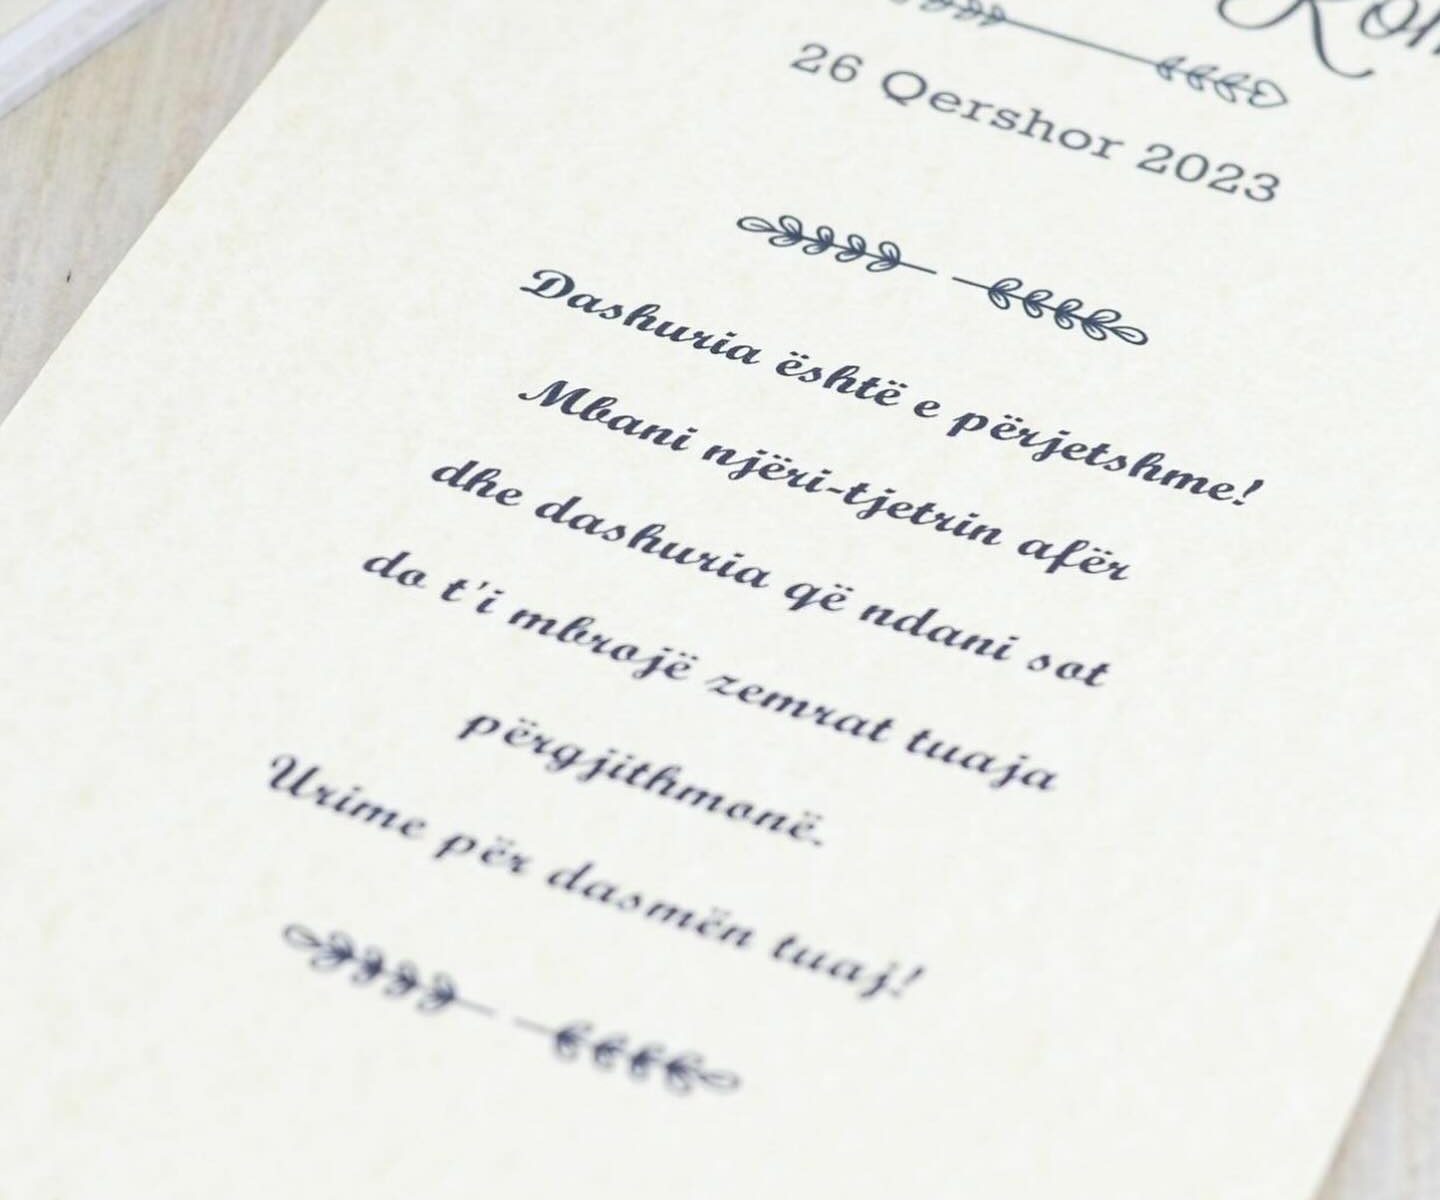 26 Qershor 2023
Dashuria është e përjetshme!
Mbani njëri-tjetrin afër
dhe dashuria që ndani sot
do t'i mbrojë zemrat tuaja
përgjithmonë.
Urime për dasmën tuaj!